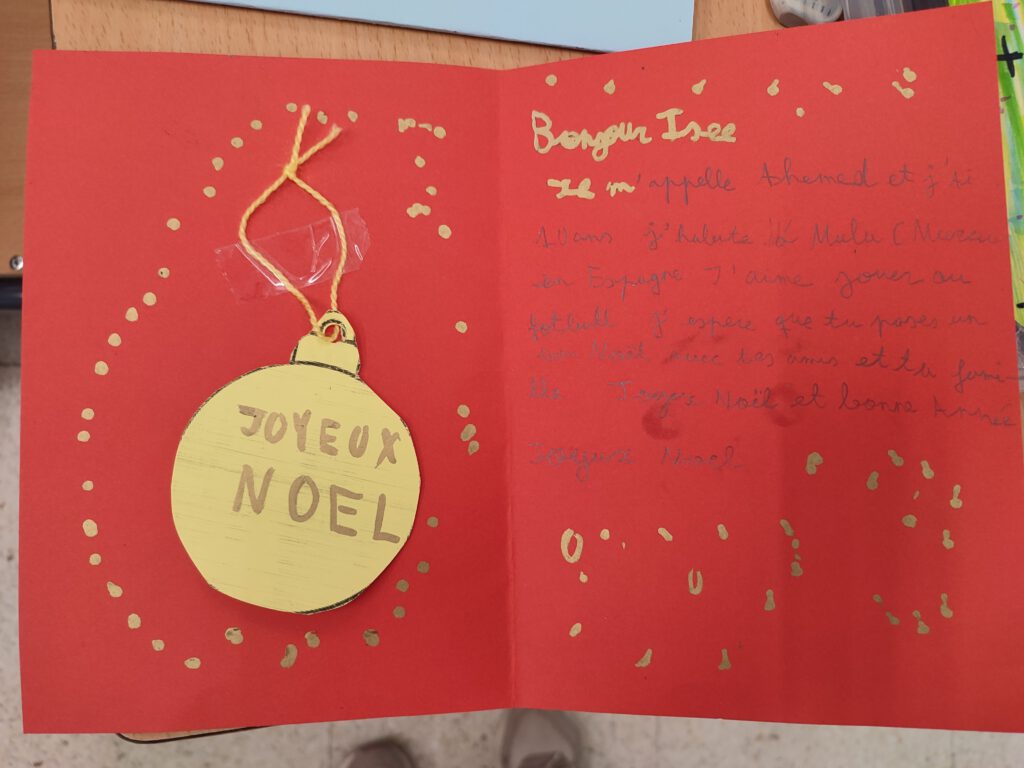 JOYEUX
NOEL
Bonjour Isee
Je m'appelle Ahemed et j'ai
10 ans j'habite à Mula (
en Espagne J'aime jouer au
fotbull j'espère que tu pases un
bon Noël avec tes amis et ta fami-
lle Joyex Noël et bonne Année
Joayeuse Noel